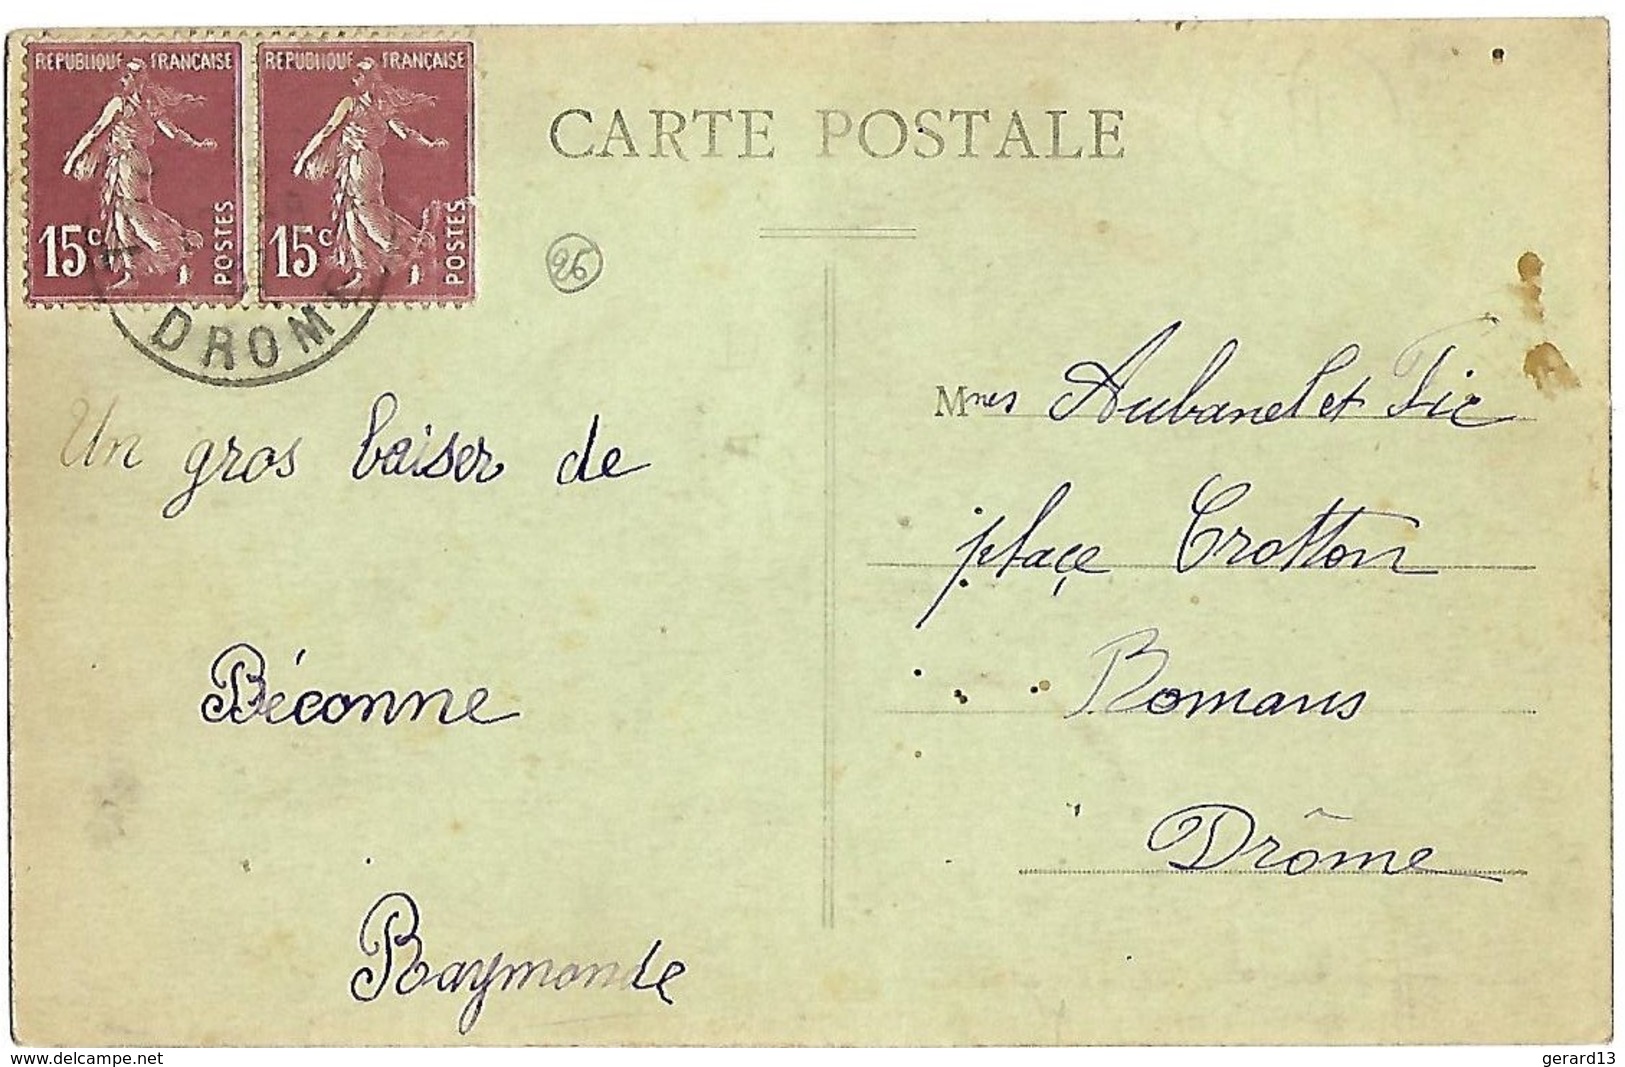 REPUBLIQUE FRANÇAISE
15c POSTES
REPUBLIQUE FRANÇAISE
15c POSTES
DROME
CARTE POSTALE
26
Un gros baiser de
Béconne
Raymonde
Mmes Aubanel et Fic
plaçe Crotton
Romans
Drôme
www.delcampe.net
gerard13